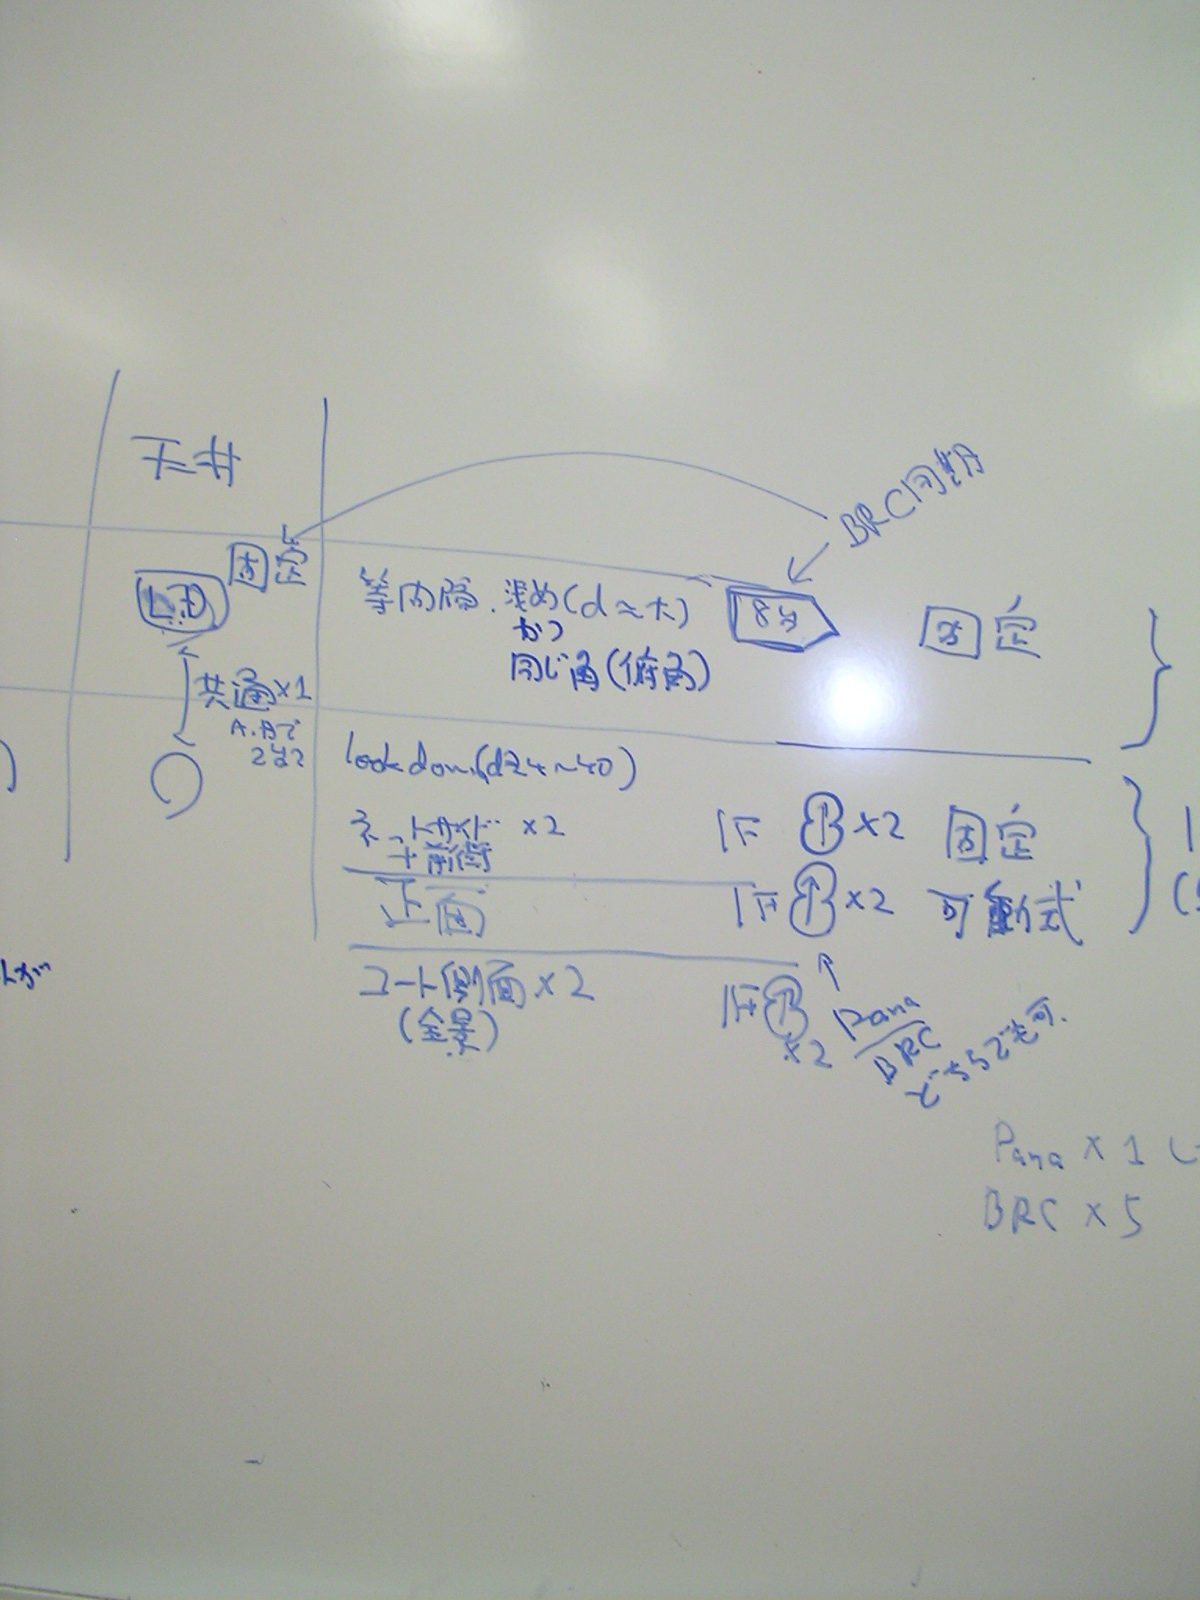 天井
BRC同期
固定
等間隔.浅め(d≃大)
かつ
同じ角(俯角)
8台
固定
共通×1
A.Bで
look down(d24~40)
ネットサイド ×2
+前衛
1F B ×2 固定
正面
1F B ×2 可動式
コート側面×2
(全景)
1F B
×2
Pana
BRC
どちらでも可.
Pana × 1
BRC × 5